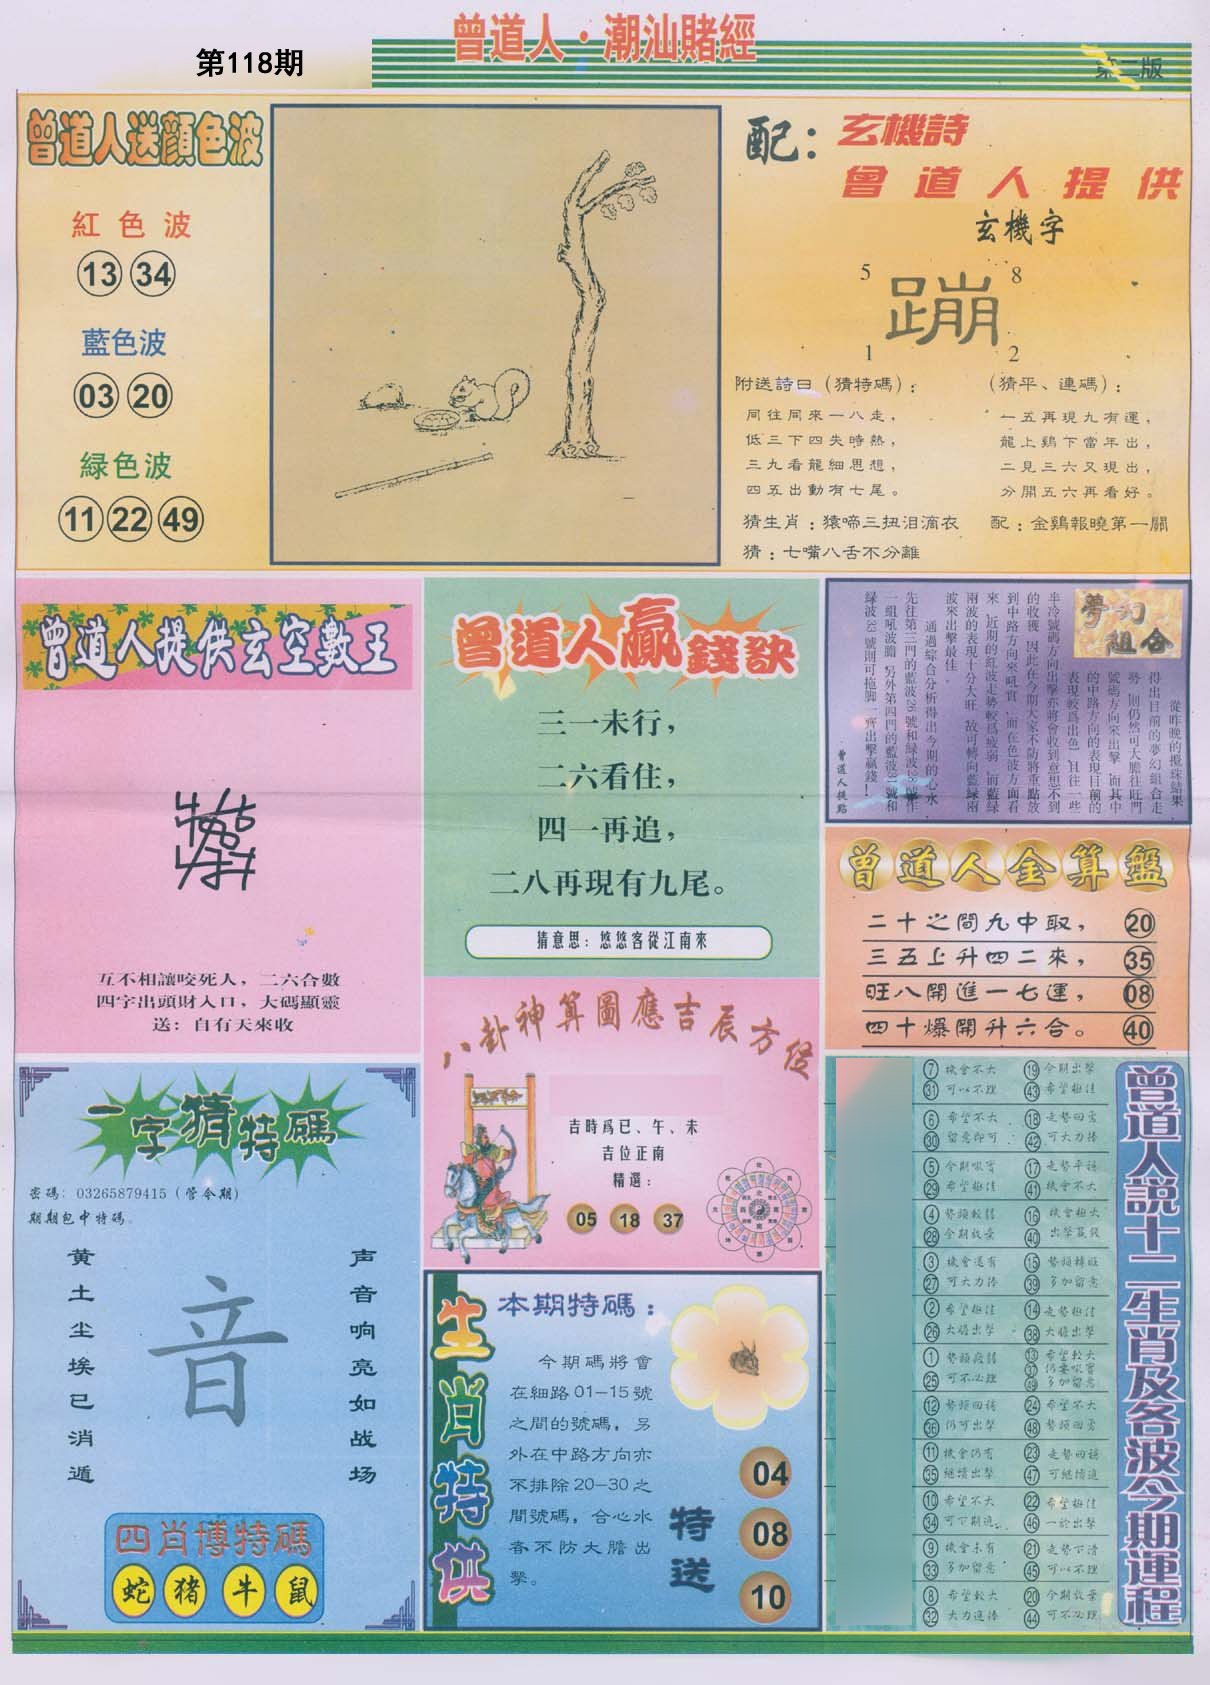 曾道人·潮汕賭經
第118期
第二版
曾道人送顏色波
紅色波
13 34
藍色波
03 20
緑色波
11 22 49
配：玄機詩
曾道人提供
玄機字
5 8
蹦
1 2
附送詩曰（猜特碼）：
同往同來一八走，
低三下四失時熱，
三九看龍細思想，
四五出動有七尾。
（猜平、連碼）：
一五再現九有運，
龍上鷄下當年出，
二見三六又現出，
分開五六再看好。
猜生肖：猿啼三扭泪滴衣
配：金鷄報曉第一關
猜：七嘴八舌不分離
曾道人提供玄空數王
互不相讓咬死人，二六合數
四字出頭財入口，大碼顯靈
送：自有天來收
曾道人贏錢訣
三一未行，
二六看住，
四一再追，
二八再現有九尾。
猜意思：悠悠客從江南來
夢幻組合
從昨晚的攪珠結果
得出目前的夢幻組合走
勢，則仍然可大膽往旺門
號碼方向來出擊，而其中
的中路方向的表現目前的
表現較爲出色，且往一些
半冷號碼方向出擊亦將會收到意想不到
的收獲，因此在今期大家不防將重點放
到中路方向來吼實，而在色波方面看
來，近期的紅波走勢較爲疲弱，而藍緑
兩波的表現十分大旺，故可轉向藍緑兩
波來出擊最佳。
通過綜合分析得出今期的心水
先往第三門的藍波26號和緑波28號作
一組吼波膽，另外第四門的藍波31號和
緑波33號則可拖脚一齊出擊贏錢！
曾道人提點
曾道人金算盤
二十之間九中取， 20
三五上升四二來， 35
旺八開進一七運， 08
四十爆開升六合。 40
八卦神算圖應吉辰方位
吉時爲已、午、未
吉位正南
精選：
05 18 37
一字猜特碼
密碼：03265879415（管令期）
期期包中特碼。
黄土尘埃已消遁
音
声音响亮如战场
四肖博特碼
蛇 猪 牛 鼠
生肖特供
本期特碼：
今期碼將會
在細路01-15號
之間的號碼，另
外在中路方向亦
不排除20-30之
間號碼，合心水
者不防大膽出
擊。
特送
04
08
10
曾道人說十二生肖及各波今期運程
7 機會不大 19 今期出擊
31 可以不理 43 希望極佳
6 希望不大 18 走勢回勇
30 留意即可 42 可大力捧
5 今期吸實 17 走勢平穩
29 希望極佳 41 機會不大
4 勢頭較弱 16 機會極大
28 今期放棄 40 出擊贏錢
3 機會還有 15 勢頭轉旺
27 可大力捧 39 多加留意
2 希望極佳 14 走勢極佳
26 大膽出擊 38 大膽出擊
1 勢頭疲弱 13 希望較大
25 可不必理 37 仍要吸實
49 多加留意
12 勢頭回穩 24 希望不大
36 仍可出擊 48 勢頭回勇
11 機會仍有 23 走勢回穩
35 繼續出擊 47 可繼續追
10 希望不大 22 希望極佳
34 可下期追 46 一於出擊
9 機會未有 21 走勢下滑
33 多加留意 45 可以不理
8 希望較大 20 今期放棄
32 大力追捧 44 可不必理